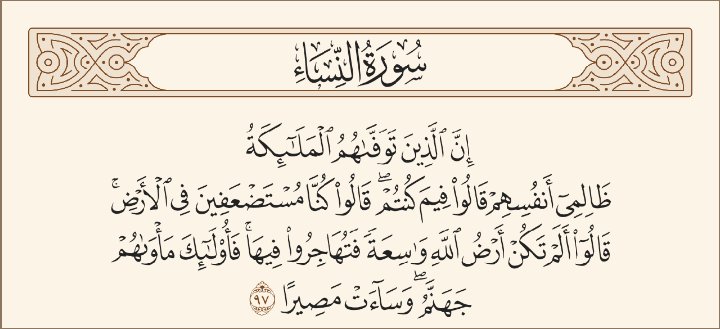 سُورَةُ النِّسَاءِ
إِنَّ ٱلَّذِينَ تَوَفَّىٰهُمُ ٱلْمَلَـٰٓئِكَةُ
ظَالِمِىٓ أَنفُسِهِمْ قَالُوا۟ فِيمَ كُنتُمْ ۖ قَالُوا۟ كُنَّا مُسْتَضْعَفِينَ فِى ٱلْأَرْضِ ۚ
قَالُوٓا۟ أَلَمْ تَكُنْ أَرْضُ ٱللَّهِ وَٰسِعَةً فَتُهَاجِرُوا۟ فِيهَا ۚ فَأُو۟لَـٰٓئِكَ مَأْوَىٰهُمْ
جَهَنَّمُ ۖ وَسَآءَتْ مَصِيرًا ٩٧